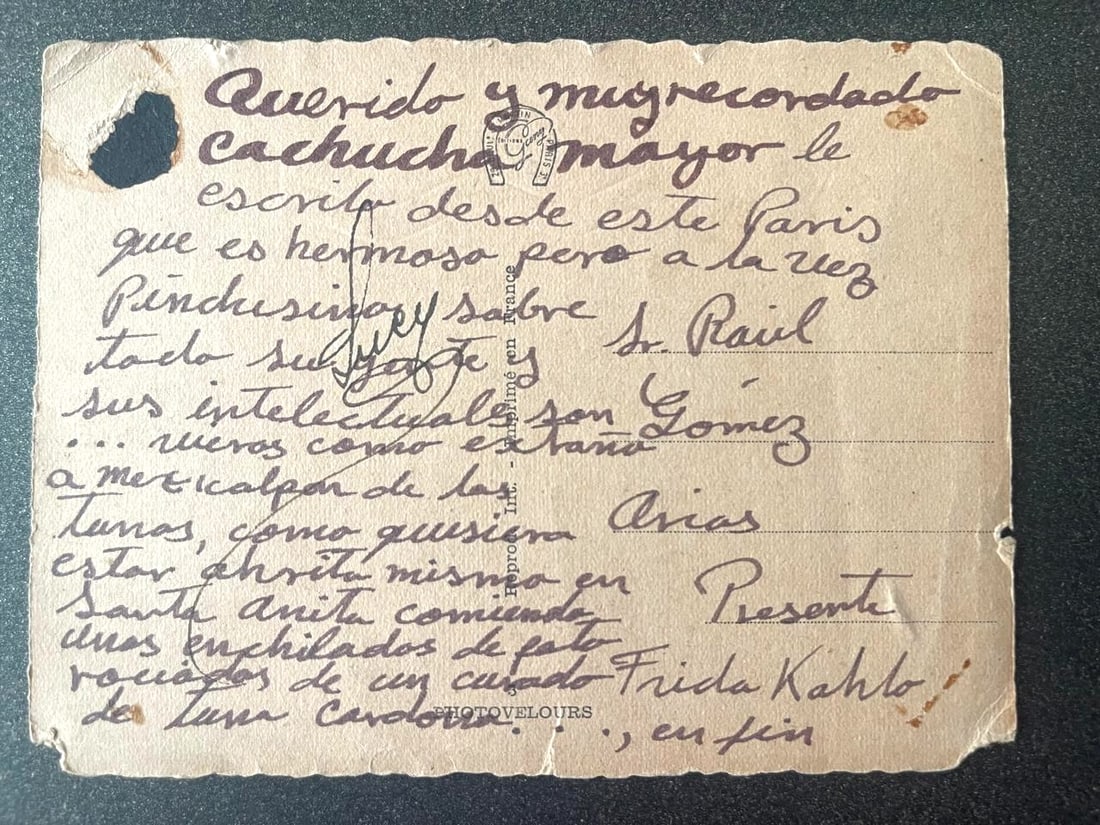 Querido y muy recordado
cachucha mayor le
escribo desde este Paris
que es hermoso pero a la vez
Pinchisimo sobre
todo su gente y
sus intelectuale son
... rueros como extraño
a mexicalpan de las
tunas, como quisiera
estar ahrita mismo en
Santa Anita comiendo
unas enchiladas de pato
rociadas de un curado
de tuna cardona. . . ., en fin
Lucy
Sr. Raúl
Gómez
Arias
Presente
Frida Kahlo
EDITIONS
Guy
Reprod. Int. - Imprimé en France
PHOTOVELOURS